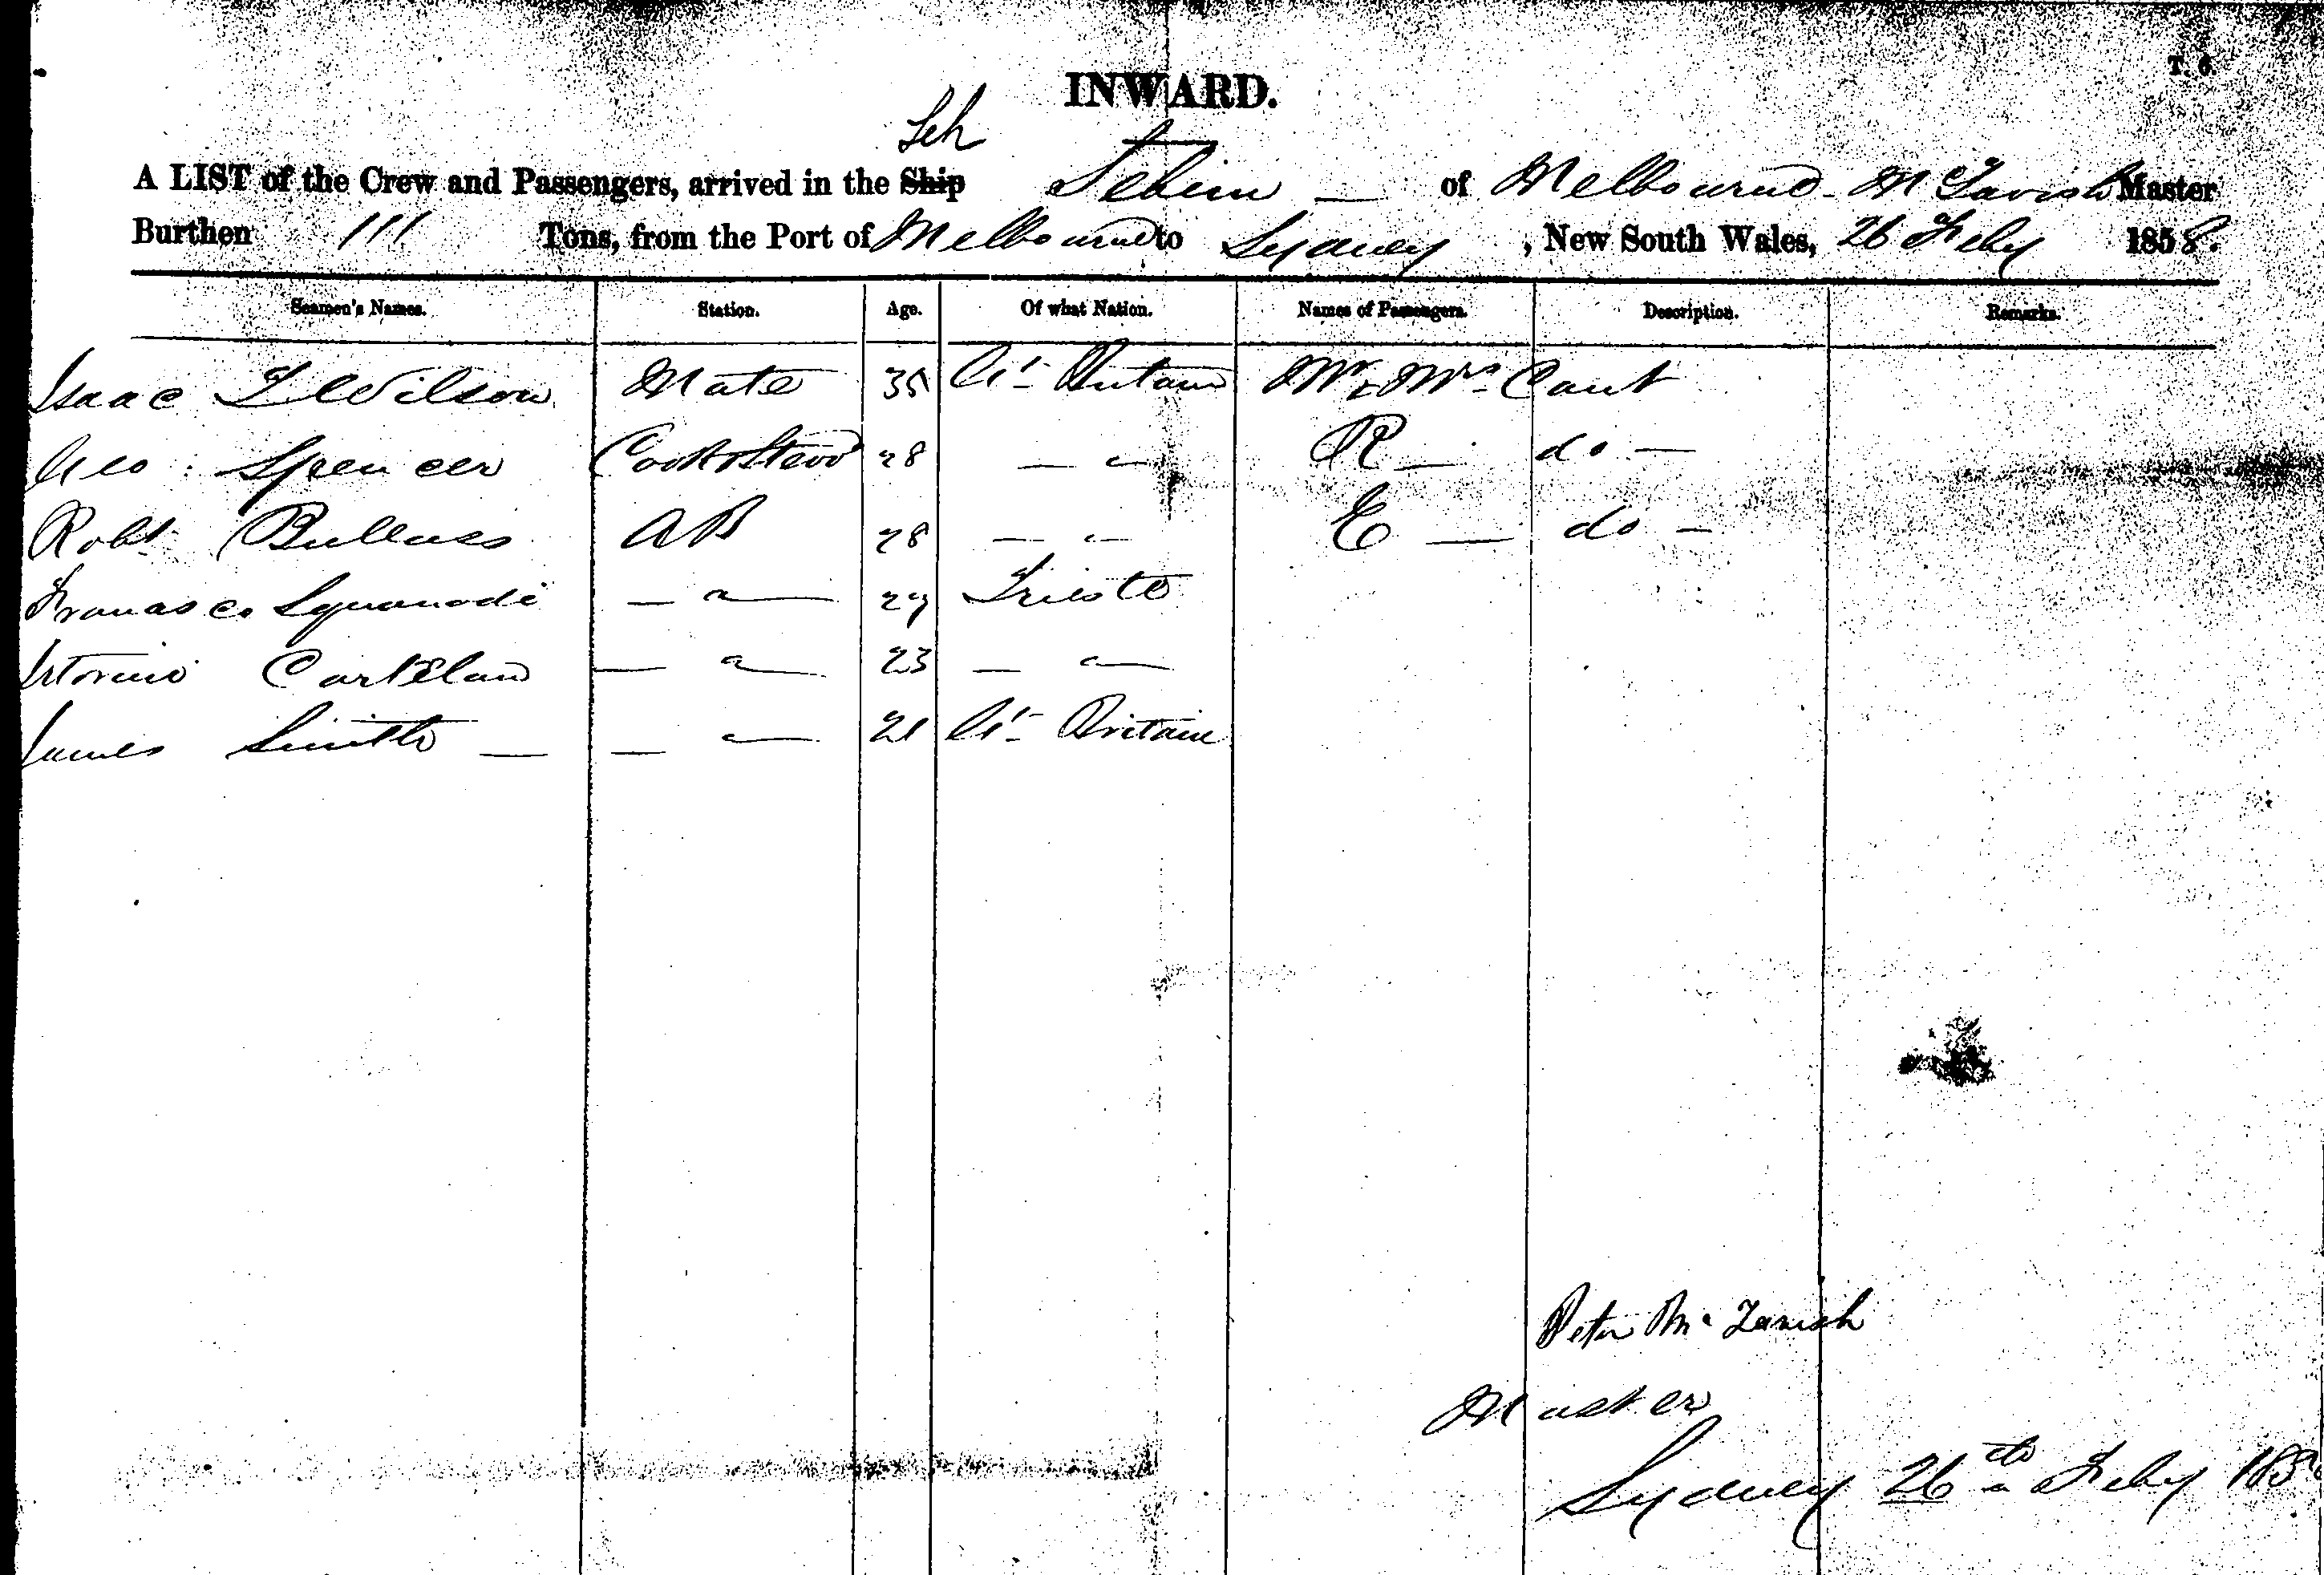 T. 6.
INWARD.
Sch
A LIST of the Crew and Passengers, arrived in the Ship of Melbourne McTavish Master
Burthen 111 Tons, from the Port of Melbourne to Sydney, New South Wales, 26 Feby 1858.
Seamen's Names. Station. Age. Of what Nation. Names of Passengers. Description. Remarks.
Isaac Wilson Mate 35 Gt Britain Mr & Mrs Cant
Geo: Spencer Cook & Stewd 28 — " — R — do —
Robt A B 28 — " — E — do —
— " — 29 Trieste
— " — 23 — " —
James Smith — — " — 21 Gt Britain
Peter McTavish
Master
Sydney 26th Feby 185